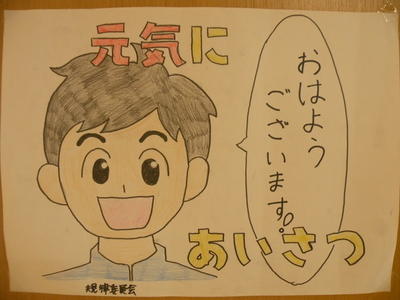 元気に
おはよう
ございます。
あいさつ
規律委員会